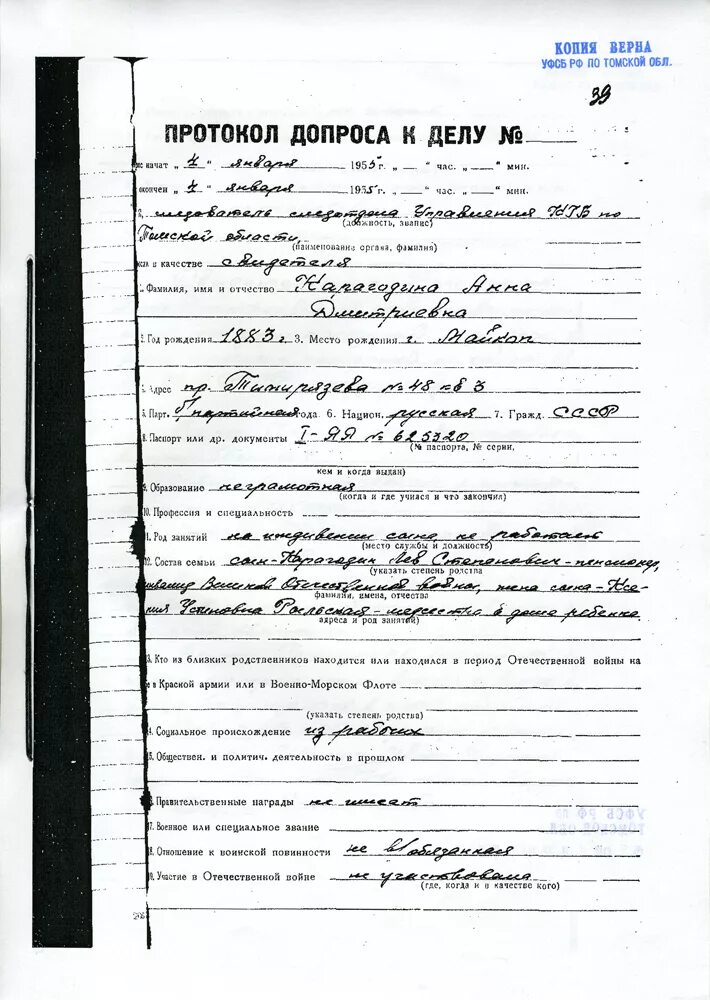 КОПИЯ ВЕРНА
УФСБ РФ ПО ТОМСКОЙ ОБЛ.
39
ПРОТОКОЛ ДОПРОСА К ДЕЛУ №
начат „4“ января 1955 г. „ “ час. „ “ мин.
окончен „4“ января 1955 г. „ “ час. „ “ мин.
следователь следотдела Управления КГБ по
(должность, звание)
Томской области
(наименование органа, фамилия)
в качестве свидетеля
Фамилия, имя и отчество Карагодина Анна
Дмитриевна
Год рождения 1883 г. 3. Место рождения г. Майкоп
Адрес пр. Тимирязева № 48 кв 3
5. Парт. б/партийная года 6. Национ. русская 7. Гражд. СССР
8. Паспорт или др. документы I-ЯЯ № 625320
(№ паспорта, № серии,
кем и когда выдан)
9. Образование неграмотная
(когда и где учился и что закончил)
10. Профессия и специальность
1. Род занятий на иждивении сына, не работает
(место службы и должность)
12. Состав семьи сын-Карагодин Лев Степанович-пенсионер,
(указать степень родства
инвалид Великой Отечественной войны, жена сына-Ксе-
фамилия, имена, отчества
ния Устиновна Рыльская-медсестра в доме ребенка.
адреса и род занятий)
3. Кто из близких родственников находится или находился в период Отечественной войны на
в Красной армии или в Военно-Морском Флоте
(указать степень родства)
4. Социальное происхождение из рабочих
5. Обществен. и политич. деятельность в прошлом
6. Правительственные награды не имеет
7. Военное или специальное звание
8. Отношение к воинской повинности не в/обязанная
9. Участие в Отечественной войне не участвовала
(где, когда и в качестве кого)